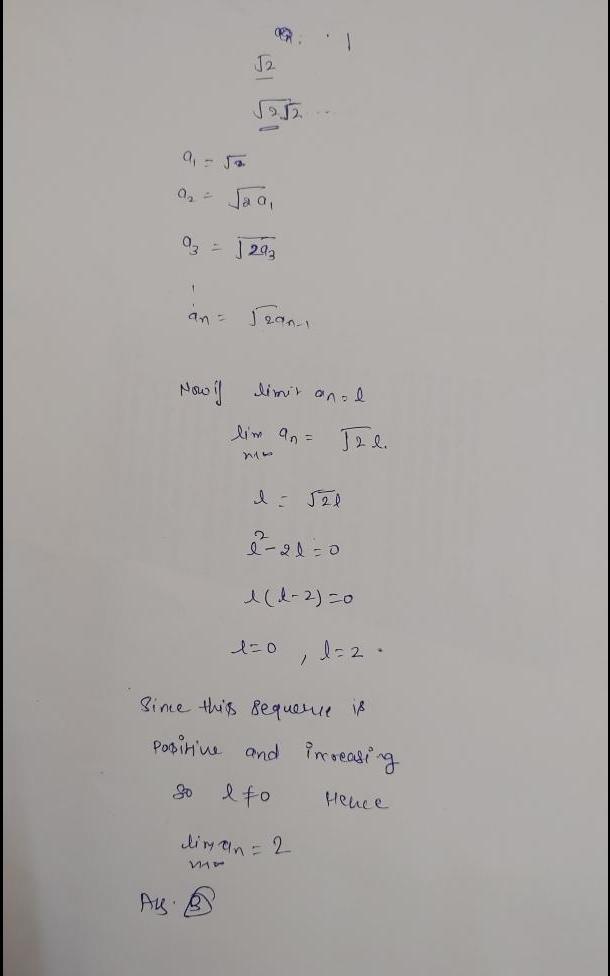 1
√2
√2√2 ...
a₁ = √2
a₂ = √2a₁
a₃ = √2a₃
an = √2an-1
Now if limit an = l
lim an = √2l.
n→∞
l = √2l
l² - 2l = 0
l(l-2)=0
l=0 , l=2 .
Since this sequence is
positive and increasing
so l ≠ 0 Hence
lim an = 2
n→∞
Ans. B